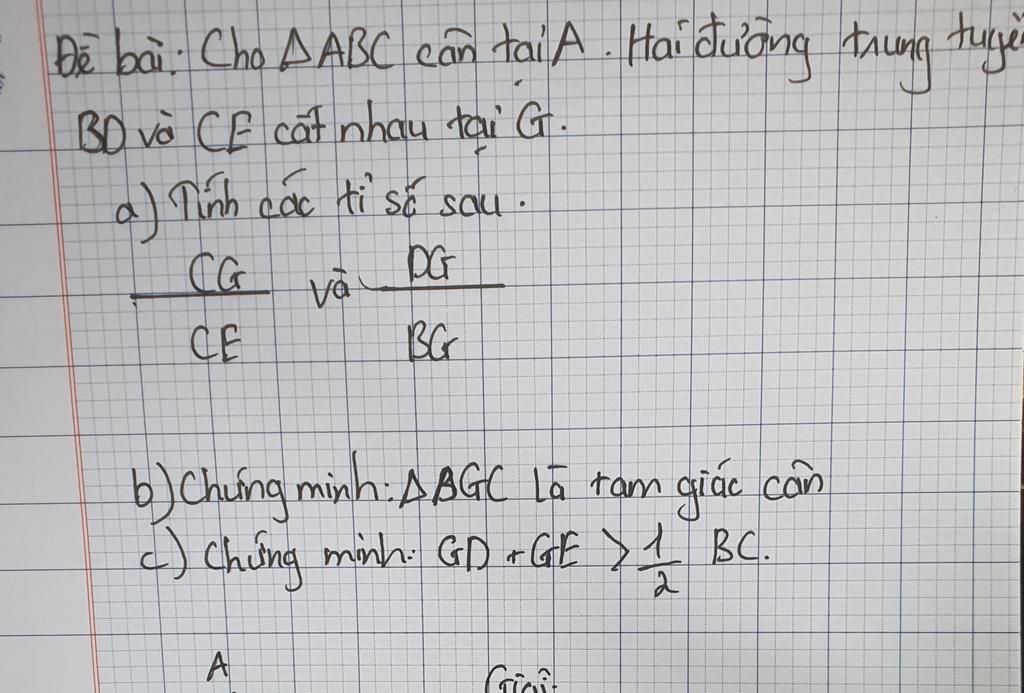 Đề bài: Cho ΔABC cân tại A. Hai đường trung tuyế
BD và CE cắt nhau tại G.
a) Tính các tỉ số sau.
CG và DG
CE BG
b) Chứng minh: ΔBGC là tam giác cân
c) Chứng minh: GD + GE > 1/2 BC.
A Giải